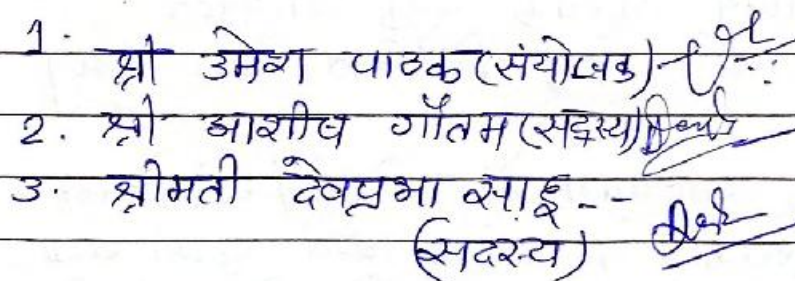 1. श्री उमेश पाठक (संयोजक) -
2. श्री आशीष गौतम (सदस्य)
3. श्रीमती देवप्रभा साहू --
(सदस्य)